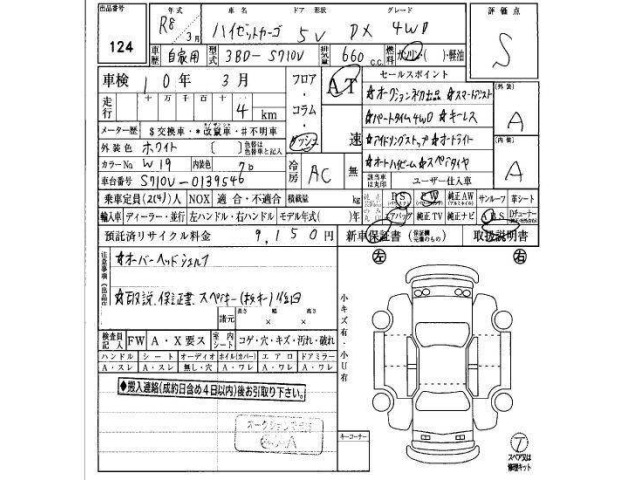 出品番号
124
年式 車名 ドア 形状 グレード
R8年3月 ハイゼットカーゴ 5V DX 4WD
評価点
S
車歴 自家用 型式 3BD-S710V 排気量 660 c.c. 燃料 ガソリン・( )・軽油
車検 10年 3月
フロア・コラム・ダッシュ
AT
速
セールスポイント
☆オークション初出品 ☆スマートアシスト
☆パートタイム4WD ☆キーレス
☆アイドリングストップ ☆オートライト
☆オートハイビーム ☆スペアタイヤ
(外装)
A
(内装)
A
走行 十万 万 千 百 十
4 km
メーター歴 $交換車・*改竄車・#不明車
外装色 ホワイト [ ] 色替は色替車と記入
カラーNo W19 内装色 グレー
冷房 AC 無
該当車は丸印 ユーザー仕入車
車台番号 S710V-0139546
乗車定員(2(4))人 NOX 適合・不適合 積載量 kg
PS PW 純正AW サンルーフ 革シート
輸入車 ディーラー・並行 左ハンドル・右ハンドル モデル年式( )年
エアバッグ 純正TV 純正ナビ
預託済リサイクル料金 9,150円
新車保証書 (保証継元帳のもの) 取扱説明書
注意事項
☆オーバーヘッドシェルフ
☆取説、保証書、スペアキー
諸元 長さ 幅 高さ × ×
左
右
小キズ有・小U有
検査員記入 FW A・X要ス 室内シート コゲ・穴・キズ・汚れ・破れ
ハンドル シート オーディオ ホイル(カバー) エアロ ドアミラー
A・スレ A・スレ 無し・穴 A・ワレ A・ワレ A・ワレ
◆搬入連絡(成約日含め4日以内)後お引取り下さい。
キーコーナー
T
スペア又は修理キット